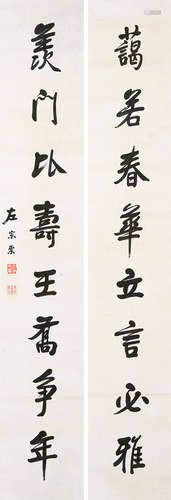 藹若春華立言必雅
羨門比壽王喬爭年
左宗棠